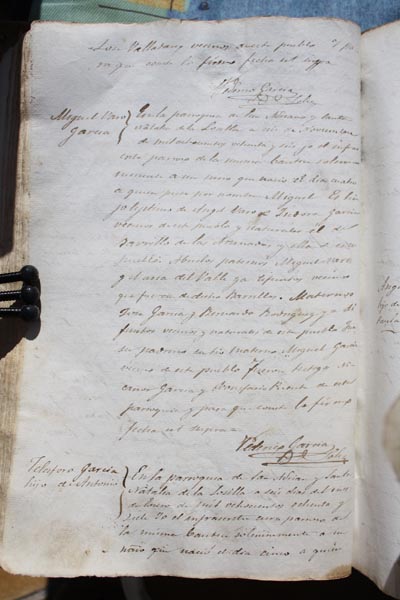 Luis Valladares vecinos de este pueblo y pa
ra que conste lo firmo fecha ut supra
Federico García
Miguel Varo
García
En la parroquia de las Nieves y Santa
Natalia de la Losilla a seis de
de mil ochocientos ochenta y seis yo el infras
crito párroco de la misma bauticé solem
nemente a un niño que nació el día cuatro
a quien puse por nombre Miguel. Es hi
jo legítimo de Angel Varo e Isidora García
vecinos de este pueblo y naturales él de
Barrillos de las Arrimadas y ella de este
pueblo. Abuelos paternos Miguel Varo
y María del Valle ya difuntos vecinos
que fueron de dicho Barrillos. Maternos
José García y Bernarda Rodríguez ya di
funtos vecinos y naturales de este pueblo. Fue
su padrino su tío materno Miguel García
vecino de este pueblo. Fueron testigos
García y Bonifacio de esta
parroquia y para que conste lo firmo
fecha ut supra
Federico García
Telesforo García
hijo de Antonio
En la parroquia de las Nieves y Santa
Natalia de la Losilla a seis días del mes
de Enero de mil ochocientos ochenta y
siete Yo el infrascrito cura párroco de
la misma bauticé solemnemente a un
niño que nació el día cinco a quien